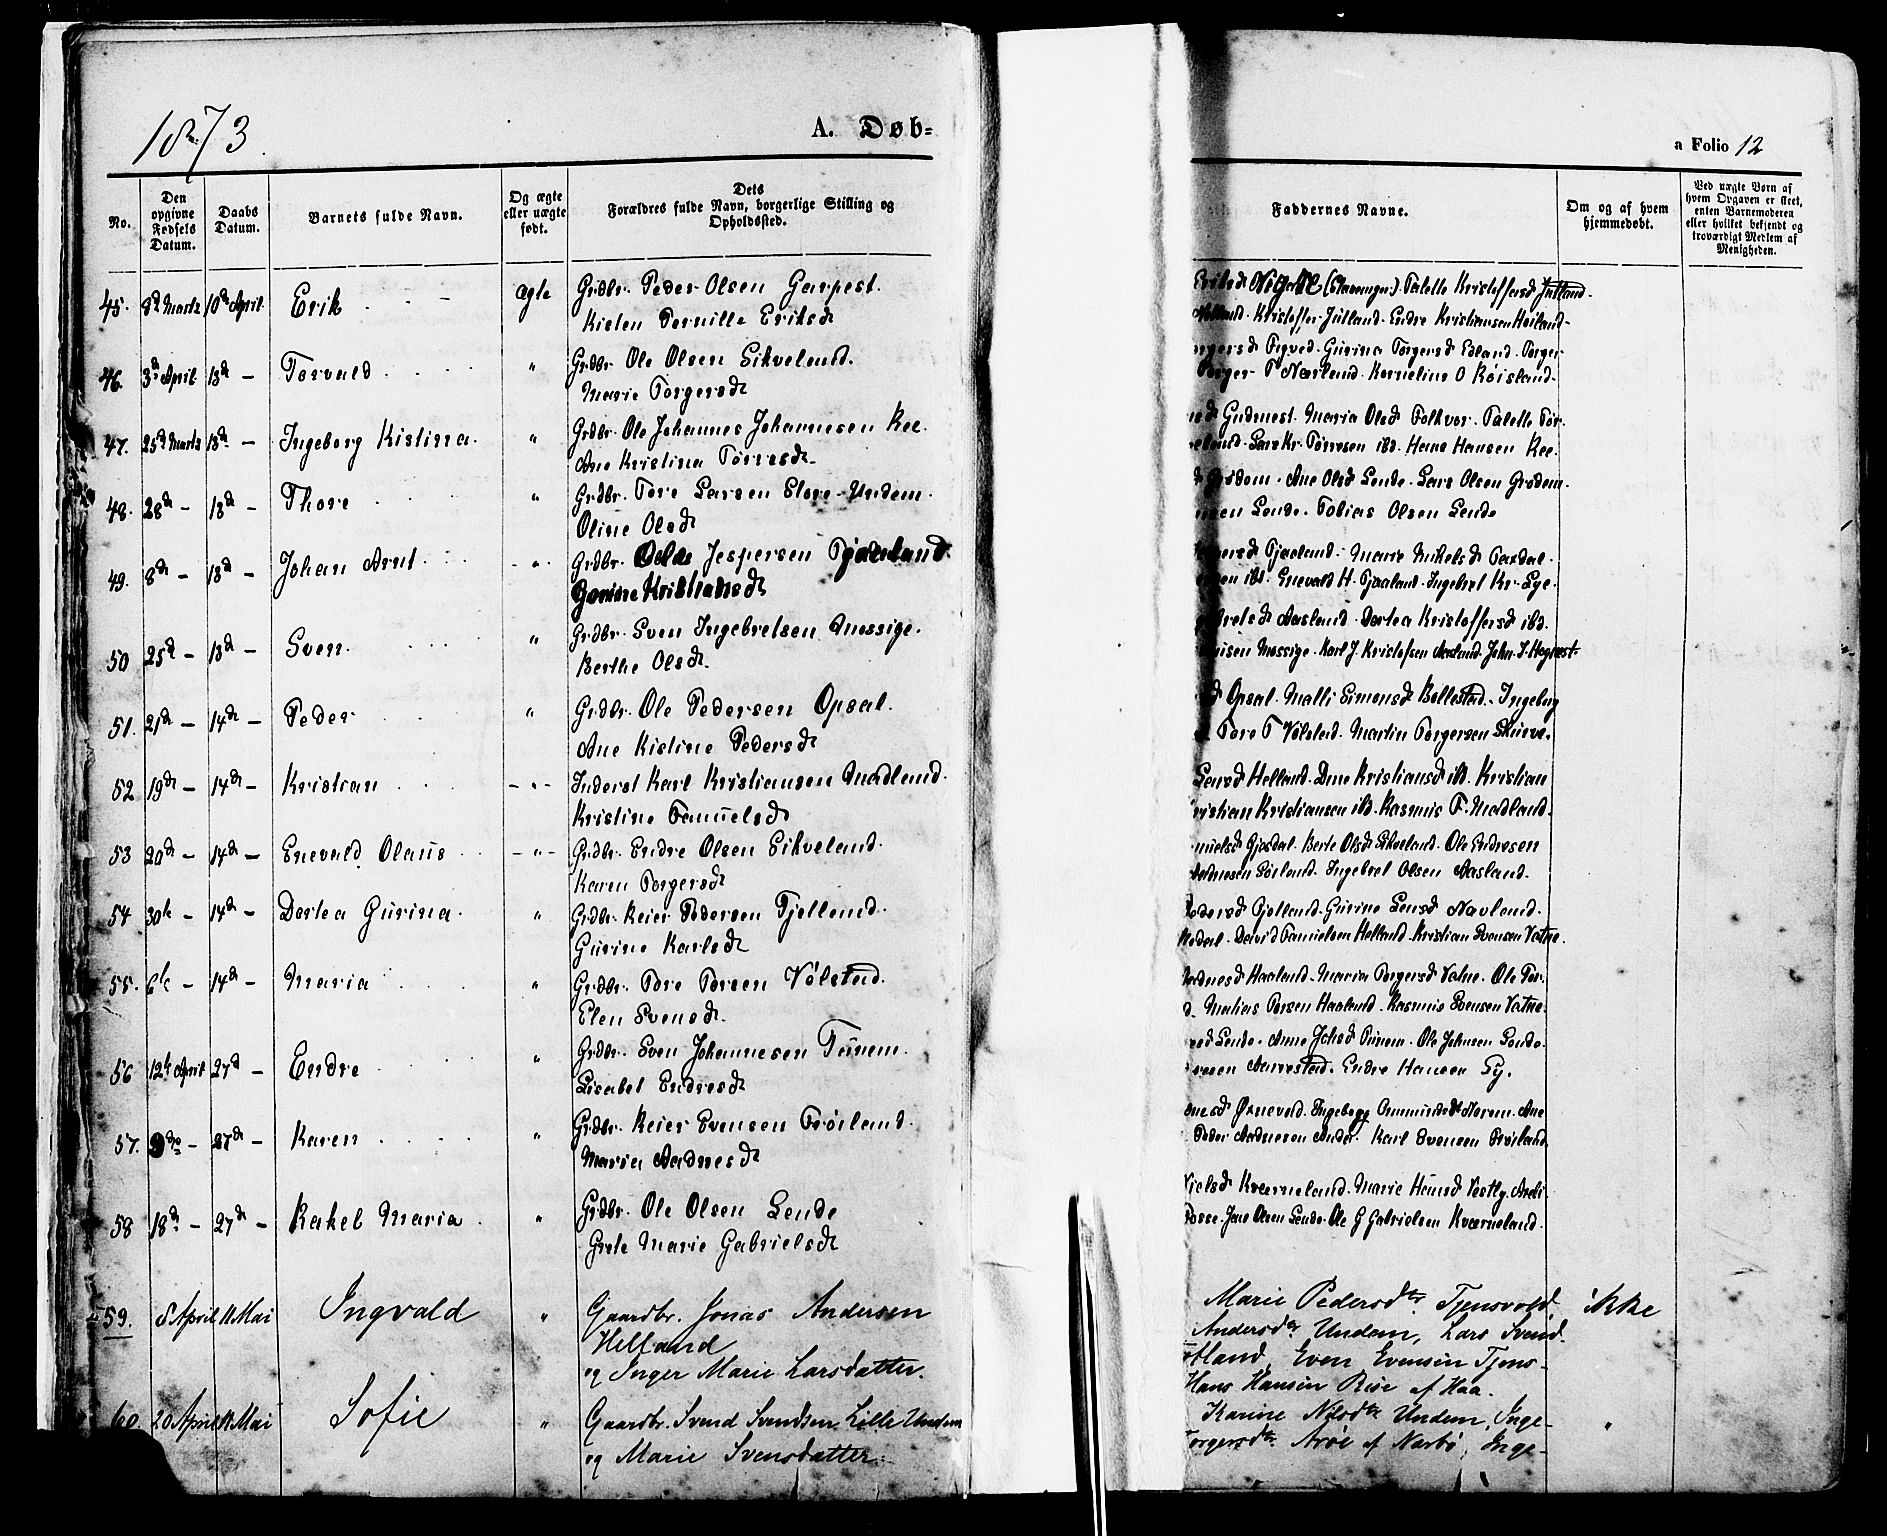 1873
A. Døb-
a Folio 12
No.
Den opgivne Fødsels Datum.
Daabs Datum.
Barnets fulde Navn.
Og ægte eller uægte født.
Dets Forældres fulde Navn, borgerlige Stilling og Opholdssted.
Faddernes Navne.
Om og af hvem hjemmedøbt.
Ved uægte Børn af hvem Opgaven er skeet, enten Barnemoderen eller hvilket bekjendt og troværdigt Medlem af Menigheden.
45. 8de Marts 10de April Erik ægte Grdbr. Peder Olsen Garpest.
Kisten Pernille Eriksdt
(Stavanger) Talette Kristoffersd Jutland.
Kristoffer Jutland. Endre Kristiansen Høiland-
46. 3de April 13de — Torvald " Grdbr. Ole Olsen Sikveland.
Marie Torgersdt
Gurina Torgersd Edland. Torger
T Nærland. Kornelius O Røisland.
47. 25de Marts 13de — Ingeborg Kistina. " Grdbr. Ole Johannes Johannesen Ree.
Ane Kristina Torresdt.
Gudmest. Maria Olsd Folkvor. Talette Tor-
Lars Kr. Törresen ibd. Hans Hansen Ree.
48. 28de — 13de — Thore " Grdbr. Tore Larsen Store-Undem.
Oline Olsdt
Grødem. Ane Olsd Lende. Lars Olsen Grødem.
Lende. Tobias Olsen Lende
49. 8de — 13de — Johan Arnt " Grdbr. Jespersen Tjaaland.
Gurine Kristiansdt
Tjaaland. Marie Mikelsd Taxdal.
ibd. Enevald H. Tjaaland. Ingebret Kr. Lye.
50 25de — 13de — Sven. " Grdbr. Sven Ingebretsen Mossige.
Berthe Olsdt.
Aasland. Dortea Kristoffersd ibd.
Mossige. Karl J. Kristofsen Aasland. John. J. Hognest.
51. 21de — 14de — Peder " Grdbr. Ole Pedersen Opsal.
Ane Kistine Pedersdt
Opsal. Malli Simonsd Bollestad. Ingeborg
Tore T Völstad. Martin Torgersen Skurve.
52 19de — 14de — Kristian " Inderst Karl Kristiansen Madland.
Kristine Tamuelsdt
Helland. Kristiansd ibd. Kristian
Kristian Kristiansen ibd. Rasmus F. Madland.
53 20de — 14de — Enevald Olaus " Grdbr. Endre Olsen Sikveland.
Karen Torgersdt
Gjesdal. Berte Olsd Sikveland. Ole Endresen
Ingebret Olsen Aasland.
54 30te — 14de — Dortea Gurina. " Grdbr. Reier Pedersen Fjelland.
Gurine Karlsdt
Pedersd Fjelland. Gurine Navland.
David Tamuelsen Helland. Kristian Svensen Vatne.
55. 6te — 14de — Maria " Grdbr. Tore Torsen Völstad.
Elen Svensdt.
Haaland. Maria Torgersd Vatne. Ole Tor-
Matias Torsen Haaland. Rasmus Svensen Vatne.
56 12te April 27de — Endre " Grdbr. Sven Johannesen Tunem.
Lisabet Endresdt
Lende. Anne Johsd Tunem. Ole Johnsen Lende.
Aarrestad. Endre Hansen Ly.
57. — 27de — Karen " Grdbr. Reier Svensen Frøiland.
Maria Aadnesdt
Ørnevold. Ingeborg Ommundsdt Norem. Ane
Peder Aadnesen Anda. Karl Svensen Frøiland.
58 18de — 27de — Rakel Maria " Grdbr. Ole Olsen Lende
Grete Marie Gabrielsdt
Nielsd Kværneland. Marie Hansd Vestly.
Jens Olsen Lende. Ole G Gabrielsen Kværneland.
59. 8 April 11 Mai Ingvald " Gaardbr. Jonas Andersen
Helland
og Inger Marie Larsdatter.
Marie Pedersdtr Tjensvold ikke
Andersdtr Undem, Lars Svend-
Even Evensen Tjens-
Hans Hansen Rise af Haa.
60 20 April 11 Mai Sofie " Gaardbr. Svend Svendsen Lille Undem
og Marie Svensdatter.
Karine Nilsdtr Undem, Inge- "
Torgersdtr. af Narbø, Inge-